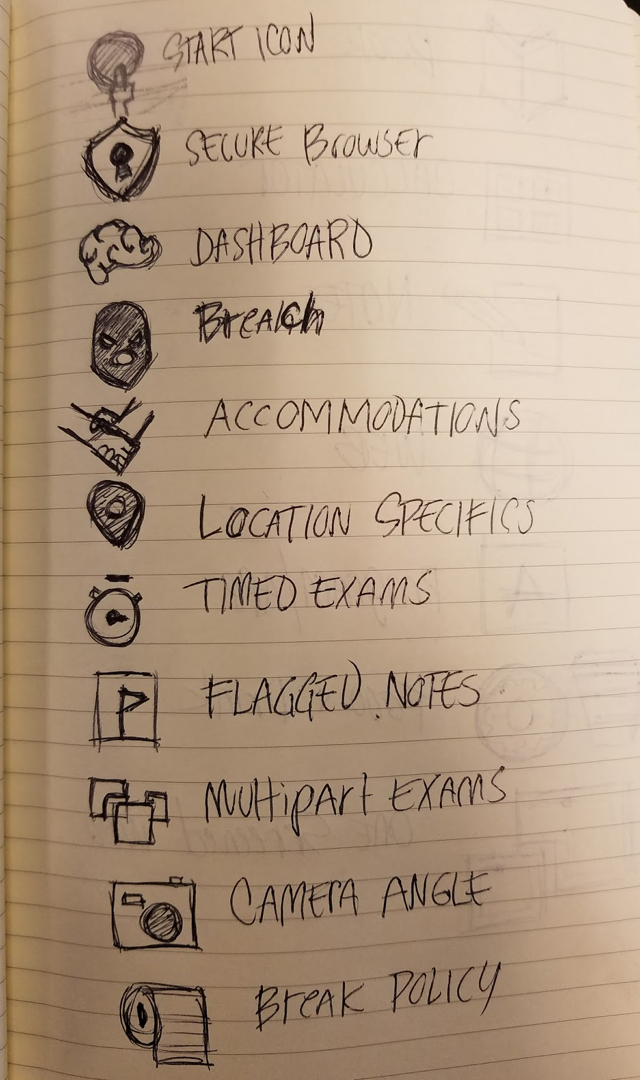 START ICON
SECURE Browser
DASHBOARD
Breach
ACCOMMODATIONS
LOCATION SPECIFICS
TIMED EXAMS
FLAGGED NOTES
Multipart EXAMS
CAMERA ANGLE
Break POLICY